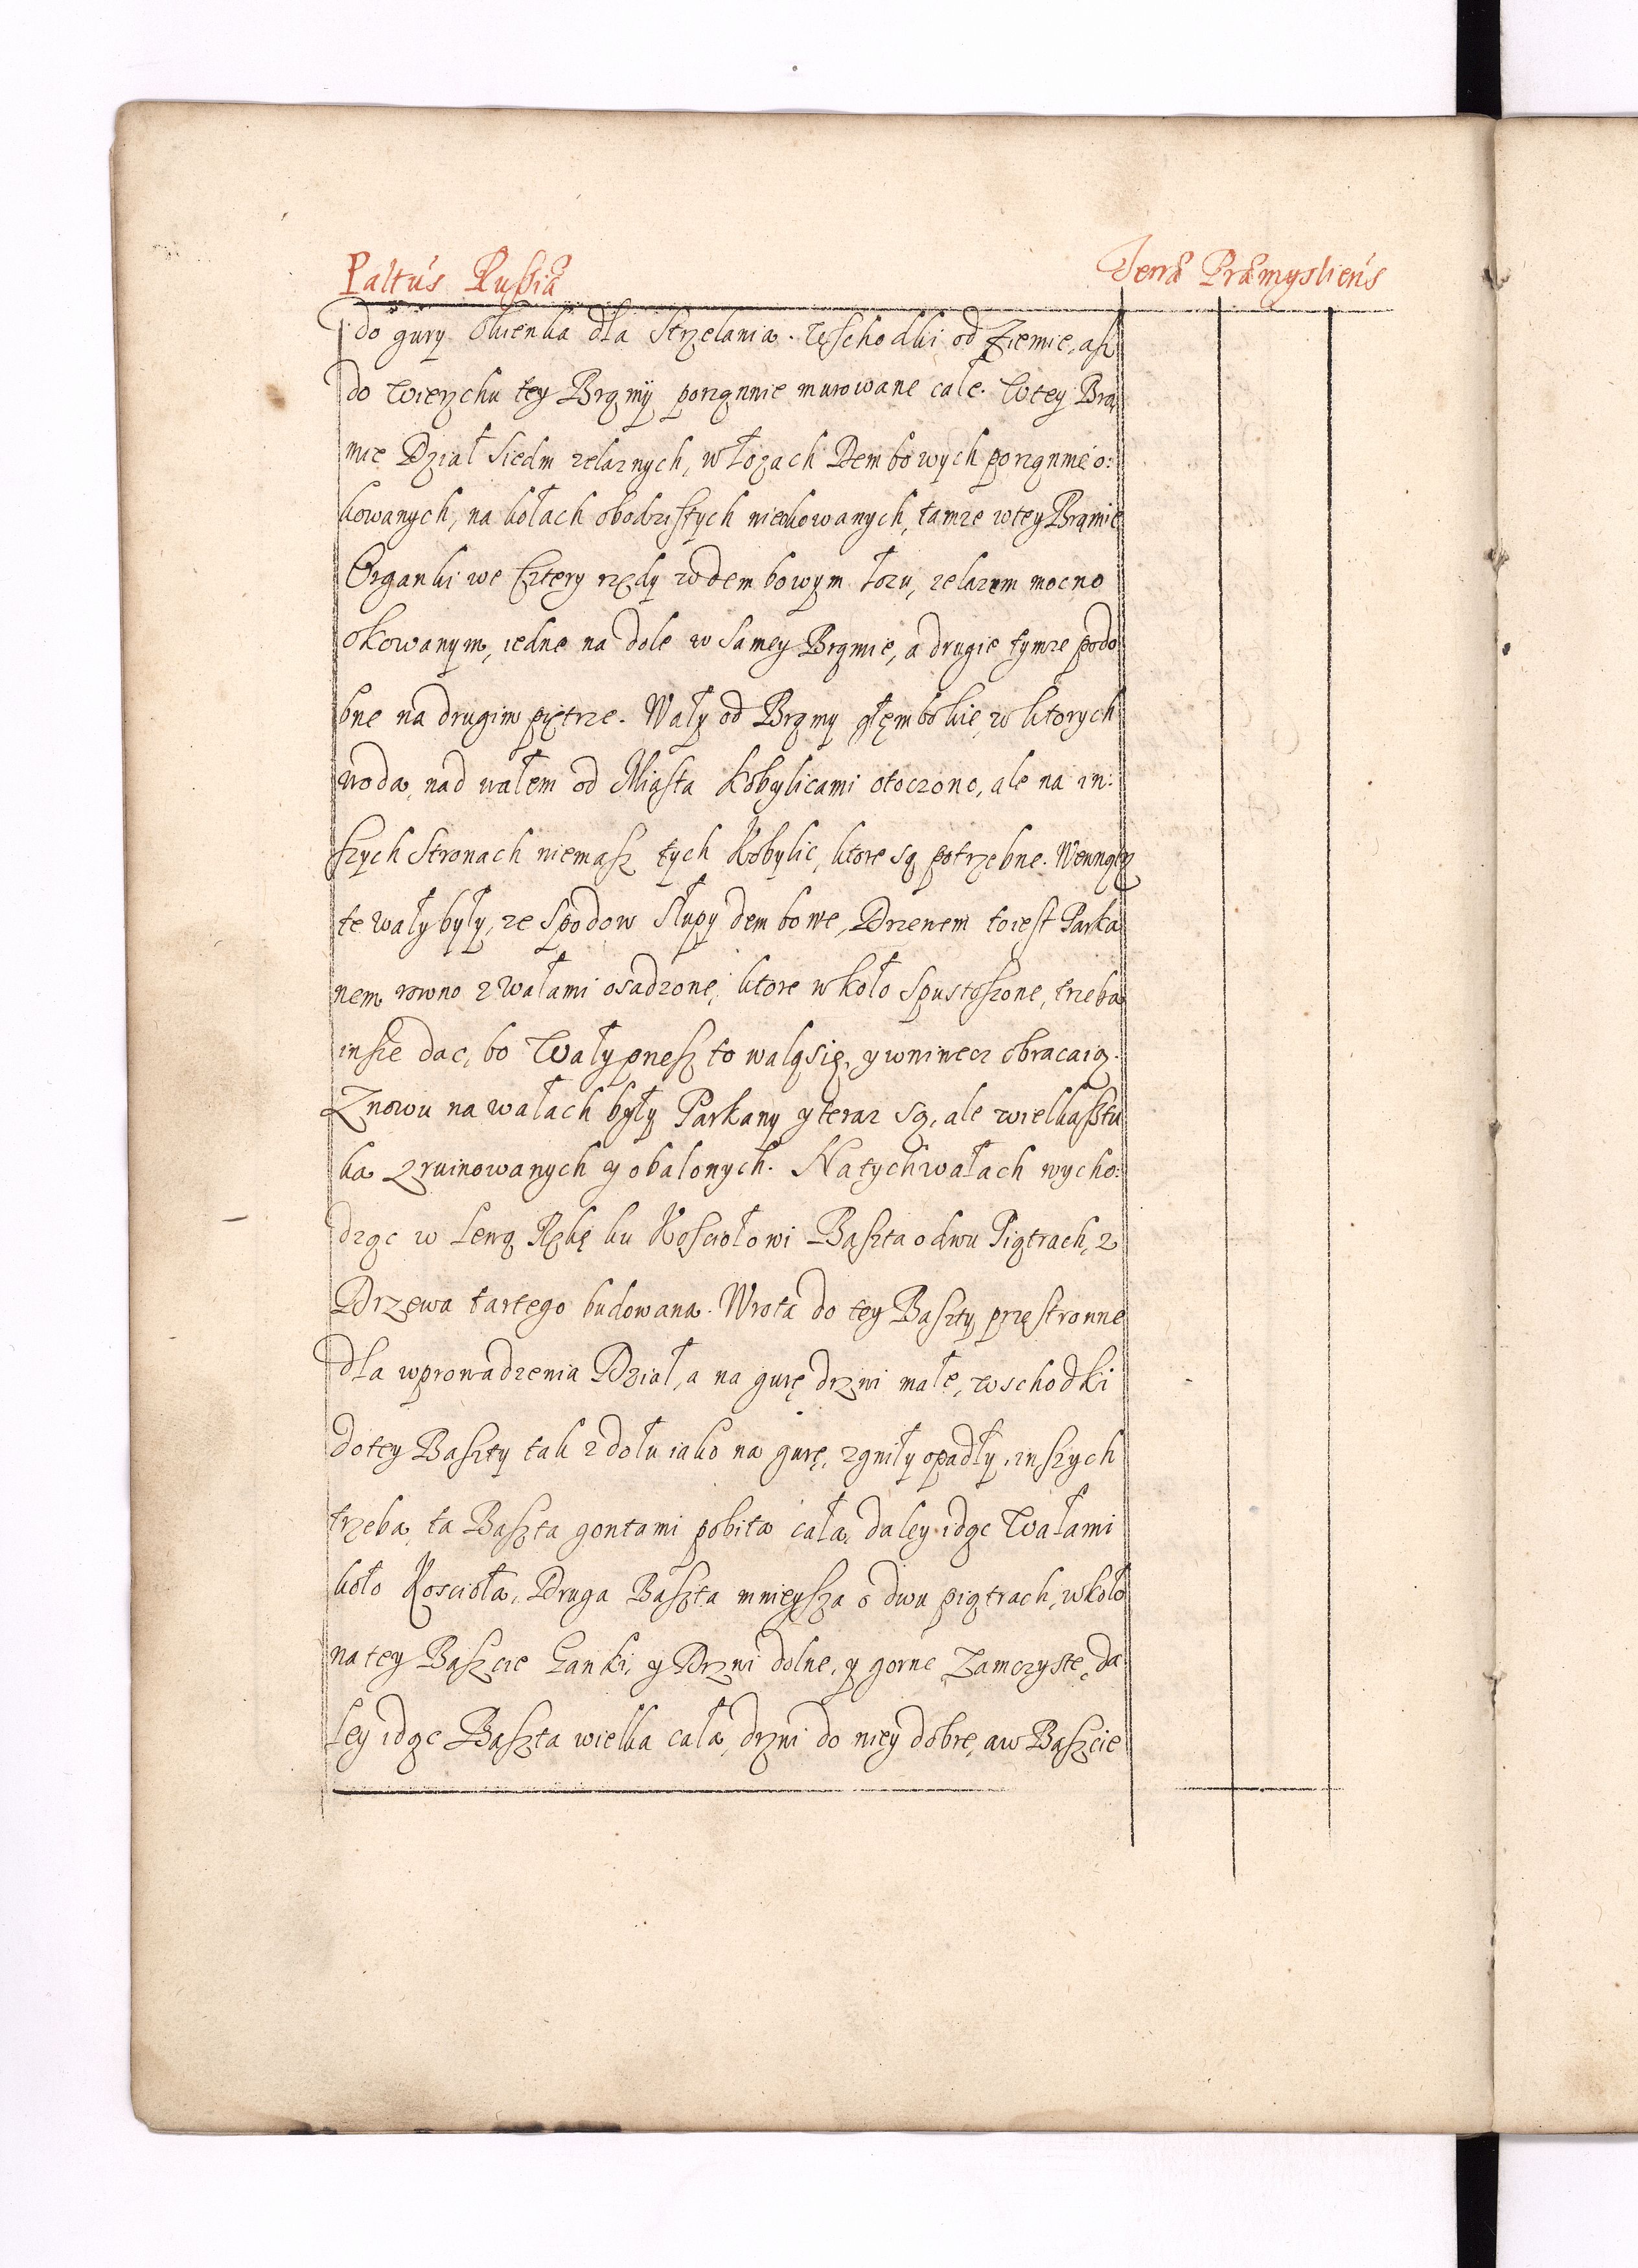 Paltus Russiæ
Terræ Præmysliens
do gury Okienka dla Strzelania. Wschodki od Ziemie, asz
do Wierzchu tey Bramy porządnie murowane całe. W tey Bra
mie Dział siedm zelaznych, w Łozach Dembowych porządnie o:
kowanych, na kołach obodzistych nieokowanych, tamze w tey Bramie
Organki we Cztery rzędy w dembowym Łozu, zelazem mocno
okowanym, iedne na dole w samey Bramie, a drugie tymze podo
bne na drugim piętrze. Wały od Bramy głembokie, w ktorych
woda, nad wałem od Miasta Kobylicami otoczono, ale na in:
szych stronach niemasz tych Kobylic, ktore są potrzebne. Wewnątrz
te wały były, ze spodow słupy dembowe, Drzewem to iest Parka
nem rowno z Wałami osadzone, ktore w koło spustoszone, trzeba
insze dac, bo Wały presz to walą się, y wniwecz obracaią.
Znowu na wałach były Parkany y teraz są, ale wielka sztu
ka zruinowanych y obalonych. Na tych wałach wycho:
dząc w Lewą Rękę ku Kosciołowi Baszta o dwu Piątrach, z
Drzewa tartego budowana. Wrota do tey Baszty przestronne
dla wprowadzenia Dział, a na gurę drzwi małe, wschodki
do tey Baszty tak z dołu iako na gurę, zgniły opadły, inszych
trzeba, ta Baszta gontami pobita cała, daley idąc Wałami
koło Koscioła, Druga Baszta mnieysza o dwu piątrach, w koło
na tey Baszcie Ganki, y Drzwi dolne, y gorne Zamczyste, da
ley idąc Baszta wielka cała, drzwi do niey dobre, a w Baszcie